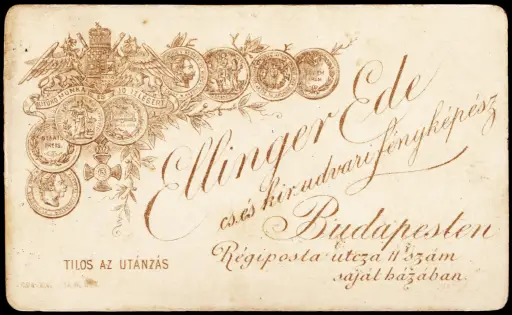 KITÜNŐ MUNKA ÉS JÓ IZLÉSÉRT
Ellinger Ede
cs. és kir. udvari fényképész
Budapesten
Régiposta utcza 11 szám
saját házában.
TILOS AZ UTÁNZÁS